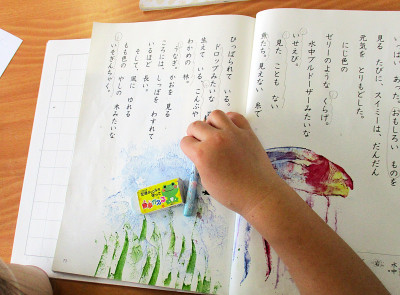 いっぱい あった。おもしろい ものを
見る たびに、スイミーは、だんだん
元気を とりもどした。
にじ色の
ゼリーのような くらげ。
水中ブルドーザーみたいな
いせえび。
見た ことも ない
魚たち。見えない 糸で
ひっぱられて いる。
ドロップみたいな
生えて いる、こんぶや
わかめの 林。
うなぎ。かおを 見る
ころには、しっぽを わすれて
いるほど 長い。
そして、風に ゆれる
もも色の やしの 木みたいな
いそぎんちゃく。
水中